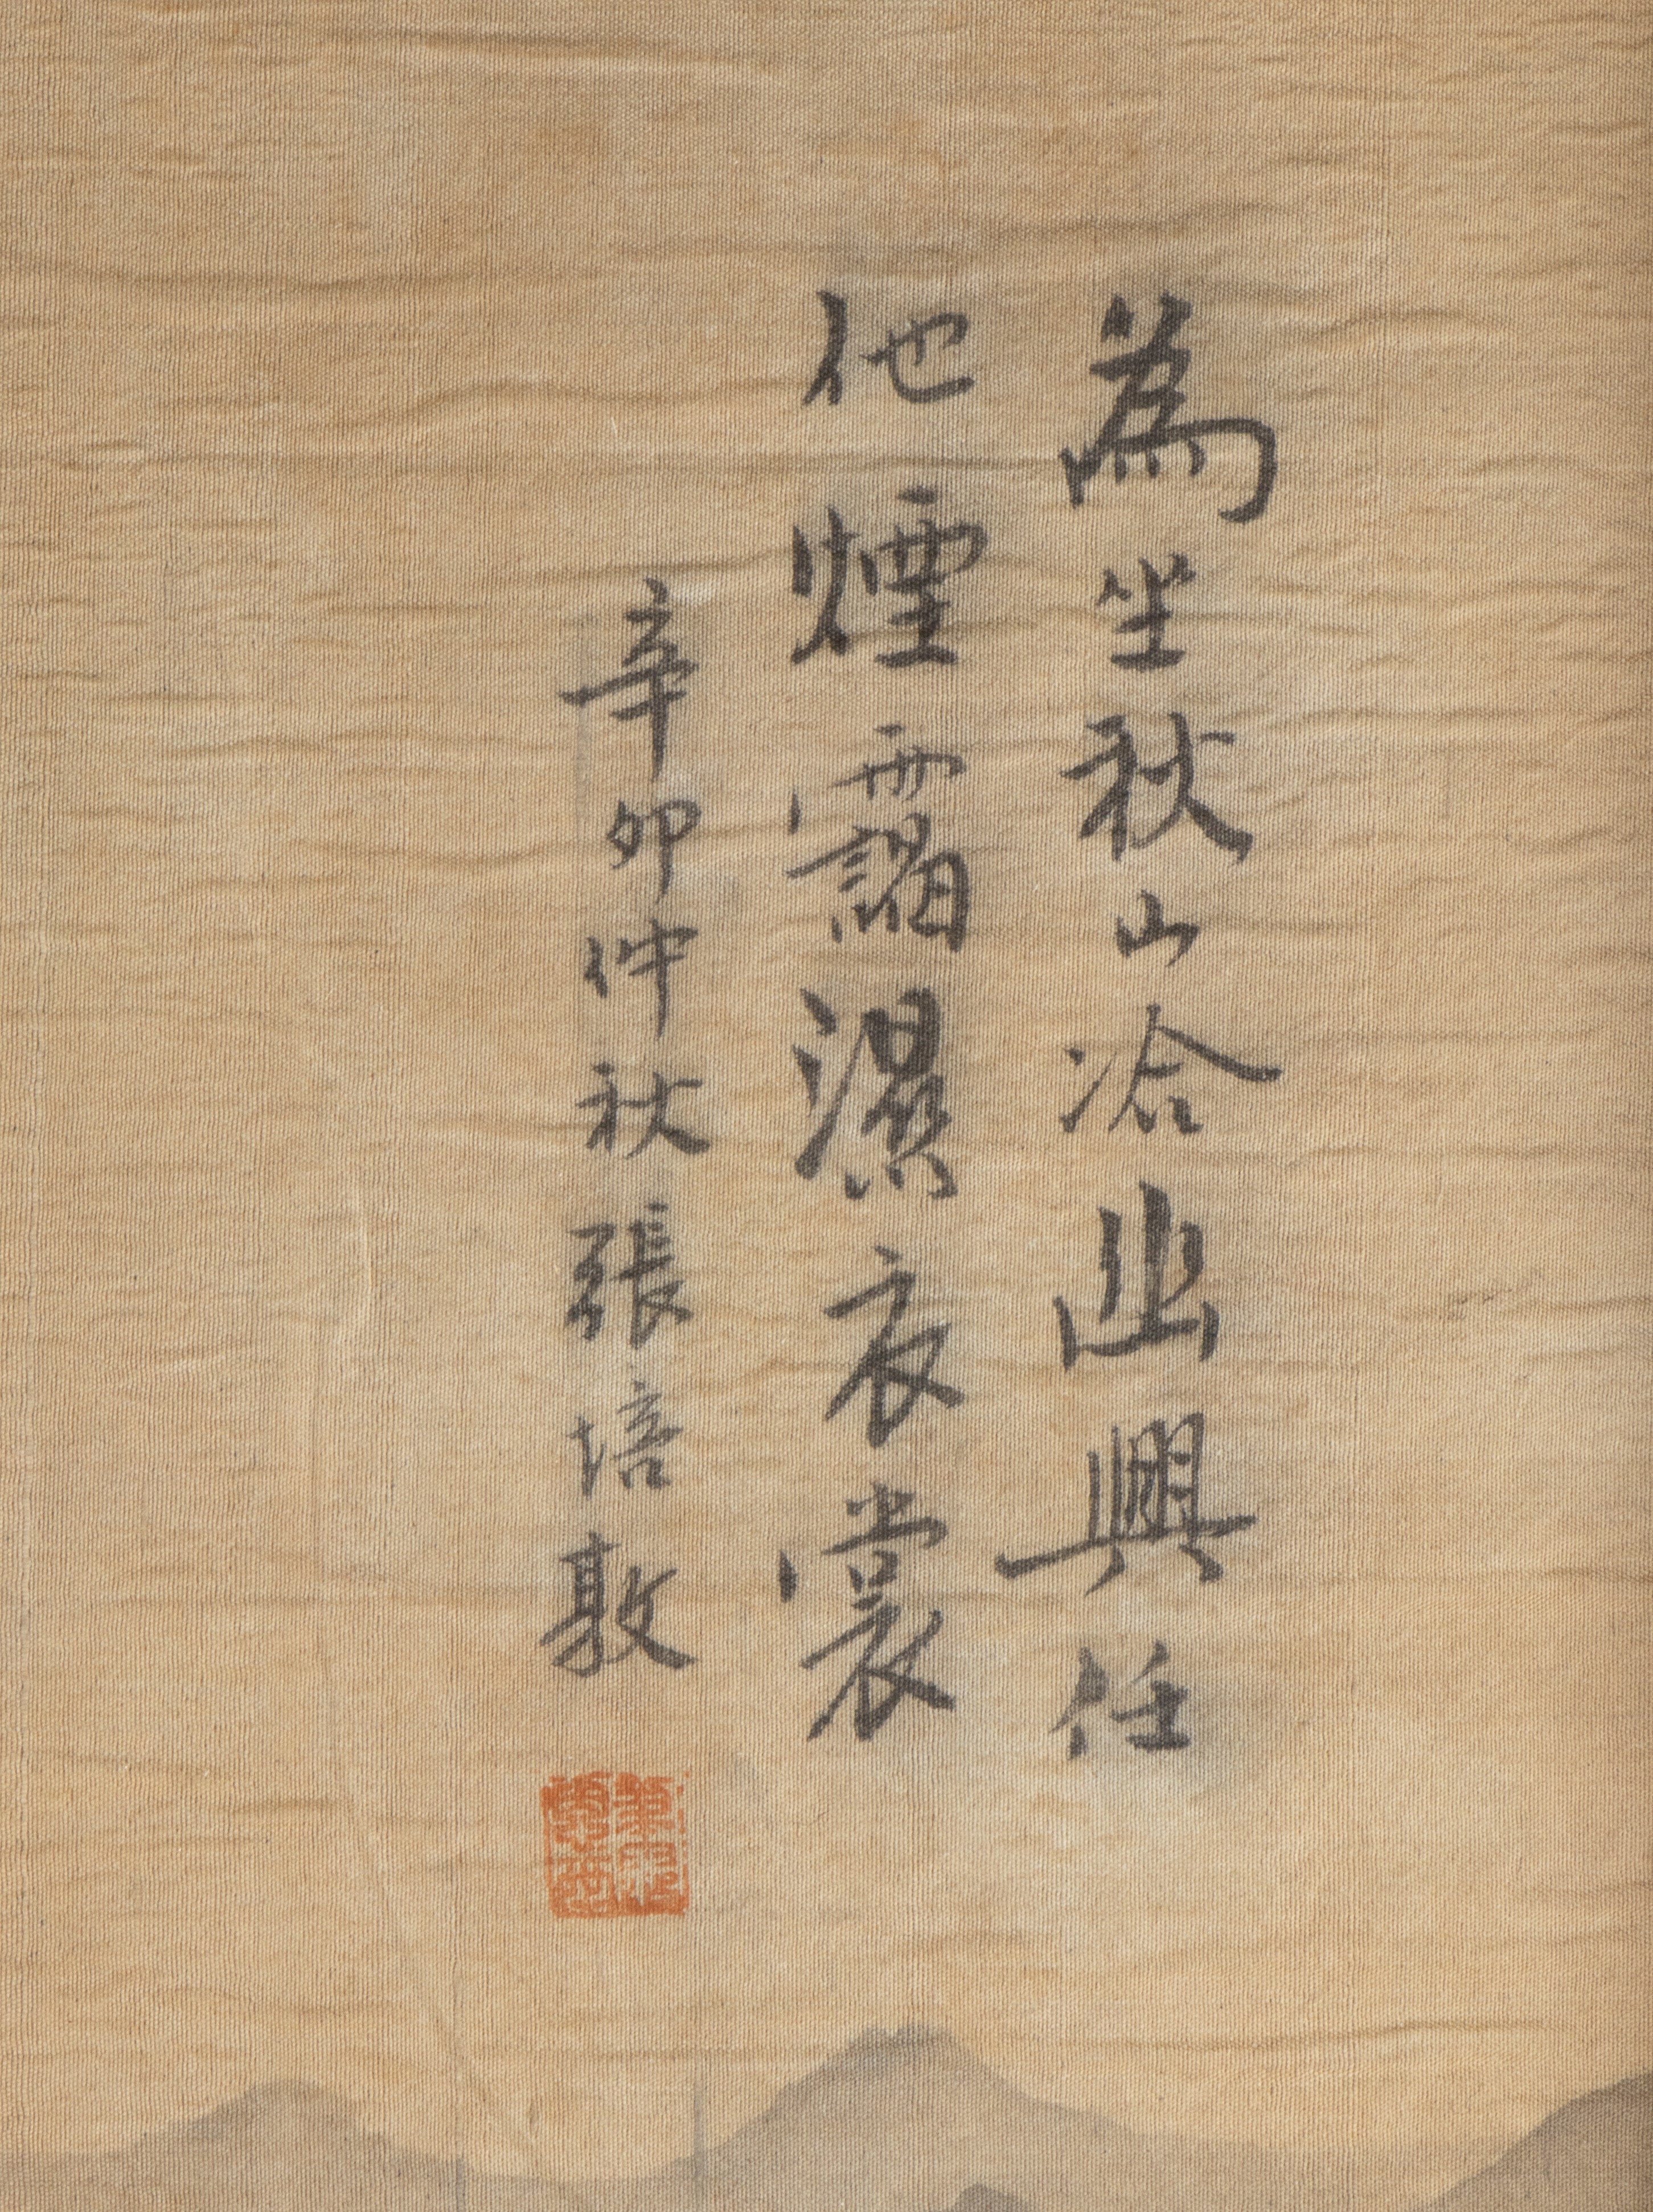 為坐秋山冷幽興任
他煙靄濕衣裳
辛卯仲秋張培敦